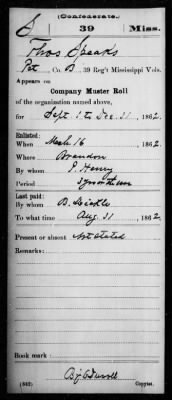 (Confederate.)
S 39 Miss.
Thos Speaks
Pvt, Co. B, 39 Reg't Mississippi Vols.
Appears on
Company Muster Roll
of the organization named above,
for Sept 1 to Dec 31, 1862.
Enlisted:
When Mch 16, 1862.
Where Brandon
By whom J. Henry
Period 3 yrs or the war
Last paid:
By whom B. Sickle
To what time Aug 31, 1862.
Present or absent Not stated
Remarks:
Book mark:
(642) Copyist.